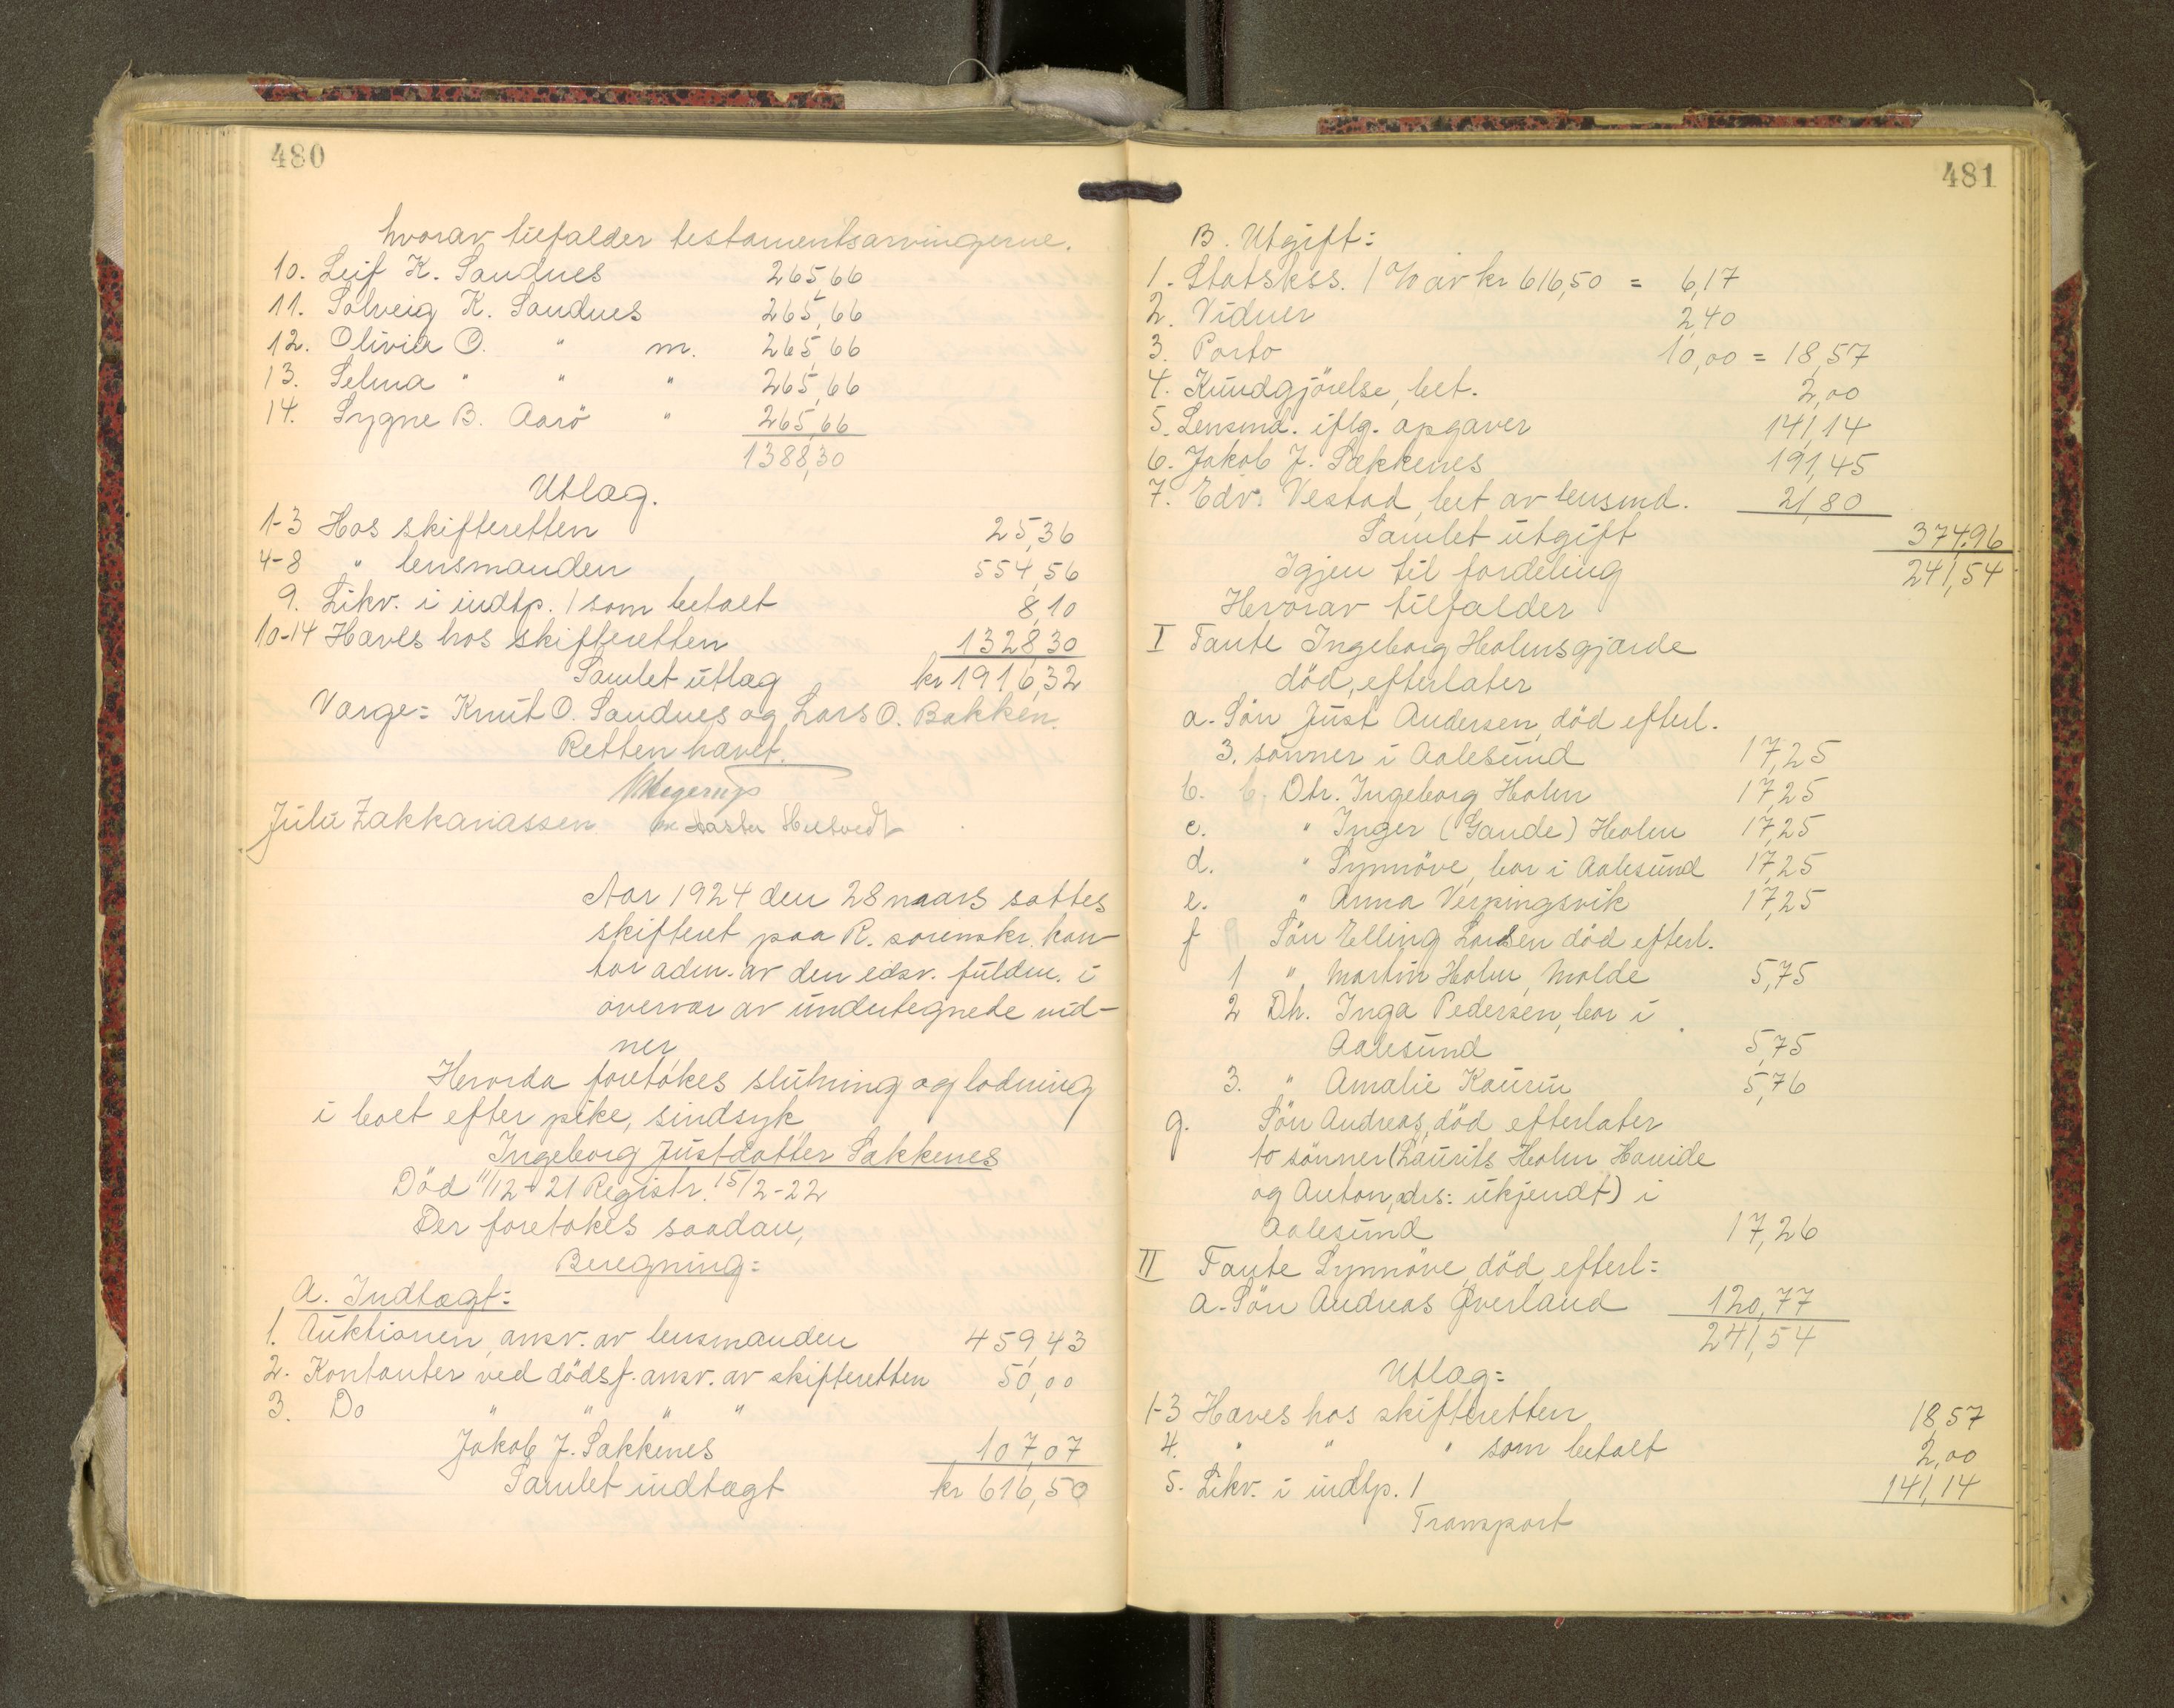 480
hvorav tilfalder testamentsarvingerne.
10. Leif K. Sandnes 265,66
11. Solveig K. Sandnes 265,66
12. Olivia O. " m. 265,66
13. Selma " " " 265,66
14. Sygne B. Aarö " 265,66
1388,30
Utlæg.
1-3 Hos skifteretten 25,36
4-8 " lensmanden 554,56
9. Likv. i indtp. 1 som betalt 8,10
10-14 Haves hos skifteretten 1328,30
Samlet utlæg kr 1916,32
Værge: Knut O. Sandnes og Lars O. Bakken.
Retten hævet.
Julu Zakkariassen
Aar 1924 den 28 mars sattes
skifteret paa R. sorenskr. kon-
tor adm. av den edsv. fuldm. i
overvær av undertegnede vid-
ner,
Hvorda foretokes slutning og lodning
i boet efter pike, sindsyk
Ingeborg Justdatter Sækkenes
Död 11/12-21 Registr. 15/2-22
Der foretokes saadan,
Beregning:
A. Indtægt:
1. Auktionen, ansv. av lensmanden 459,43
2. Kontanter ved dödsf. ansv. av skifteretten 50,00
3. Do " " " "
Jakob J. Sækkenes 107,07
Samlet indtægt kr 616,50
481
B. Utgift:
1. Statskss. 1 % av kr 616,50 = 6,17
2. Vidner 2,40
3. Porto 10,00 = 18,57
4. Kundgjörelse, bet. 2,00
5. Lensmd. iflg. opgaver 141,14
6. Jakob J. Sækkenes 191,45
7. Edv. Vestad, bet av lensmd. 21,80
Samlet utgift 374,96
Igjen til fordeling 241,54
Hvorav tilfalder
I Tante Ingeborg Holmsgjærde
död, efterlater
a. Sön Just Andersen, död efterl.
3. sönner i Aalesund 17,25
b. b, Dtr. Ingeborg Holm 17,25
c. " Inger (Gaude) Holm 17,25
d. " Synnöve, bor i Aalesund 17,25
e. " Anna Verpingsvik 17,25
f Sön Elling Larsen död efterl.
1 " Martin Holm, Molde 5,75
2 Dtr. Inga Pedersen, bor i
Aalesund 5,75
3. " Amalie Kaurin 5,76
g. Sön Andreas, död efterlater
to sönner (Laurits Holm Hareide
og Anton, adrs: ukjendt) i
Aalesund 17,26
II Tante Synnöve, död, efterl:
a. Sön Andreas Øverland 120,77
241,54
Utlæg:
1-3 Haves hos skifteretten 18,57
4. " " " som betalt 2,00
5. Likv. i indtp. 1 141,14
Transport